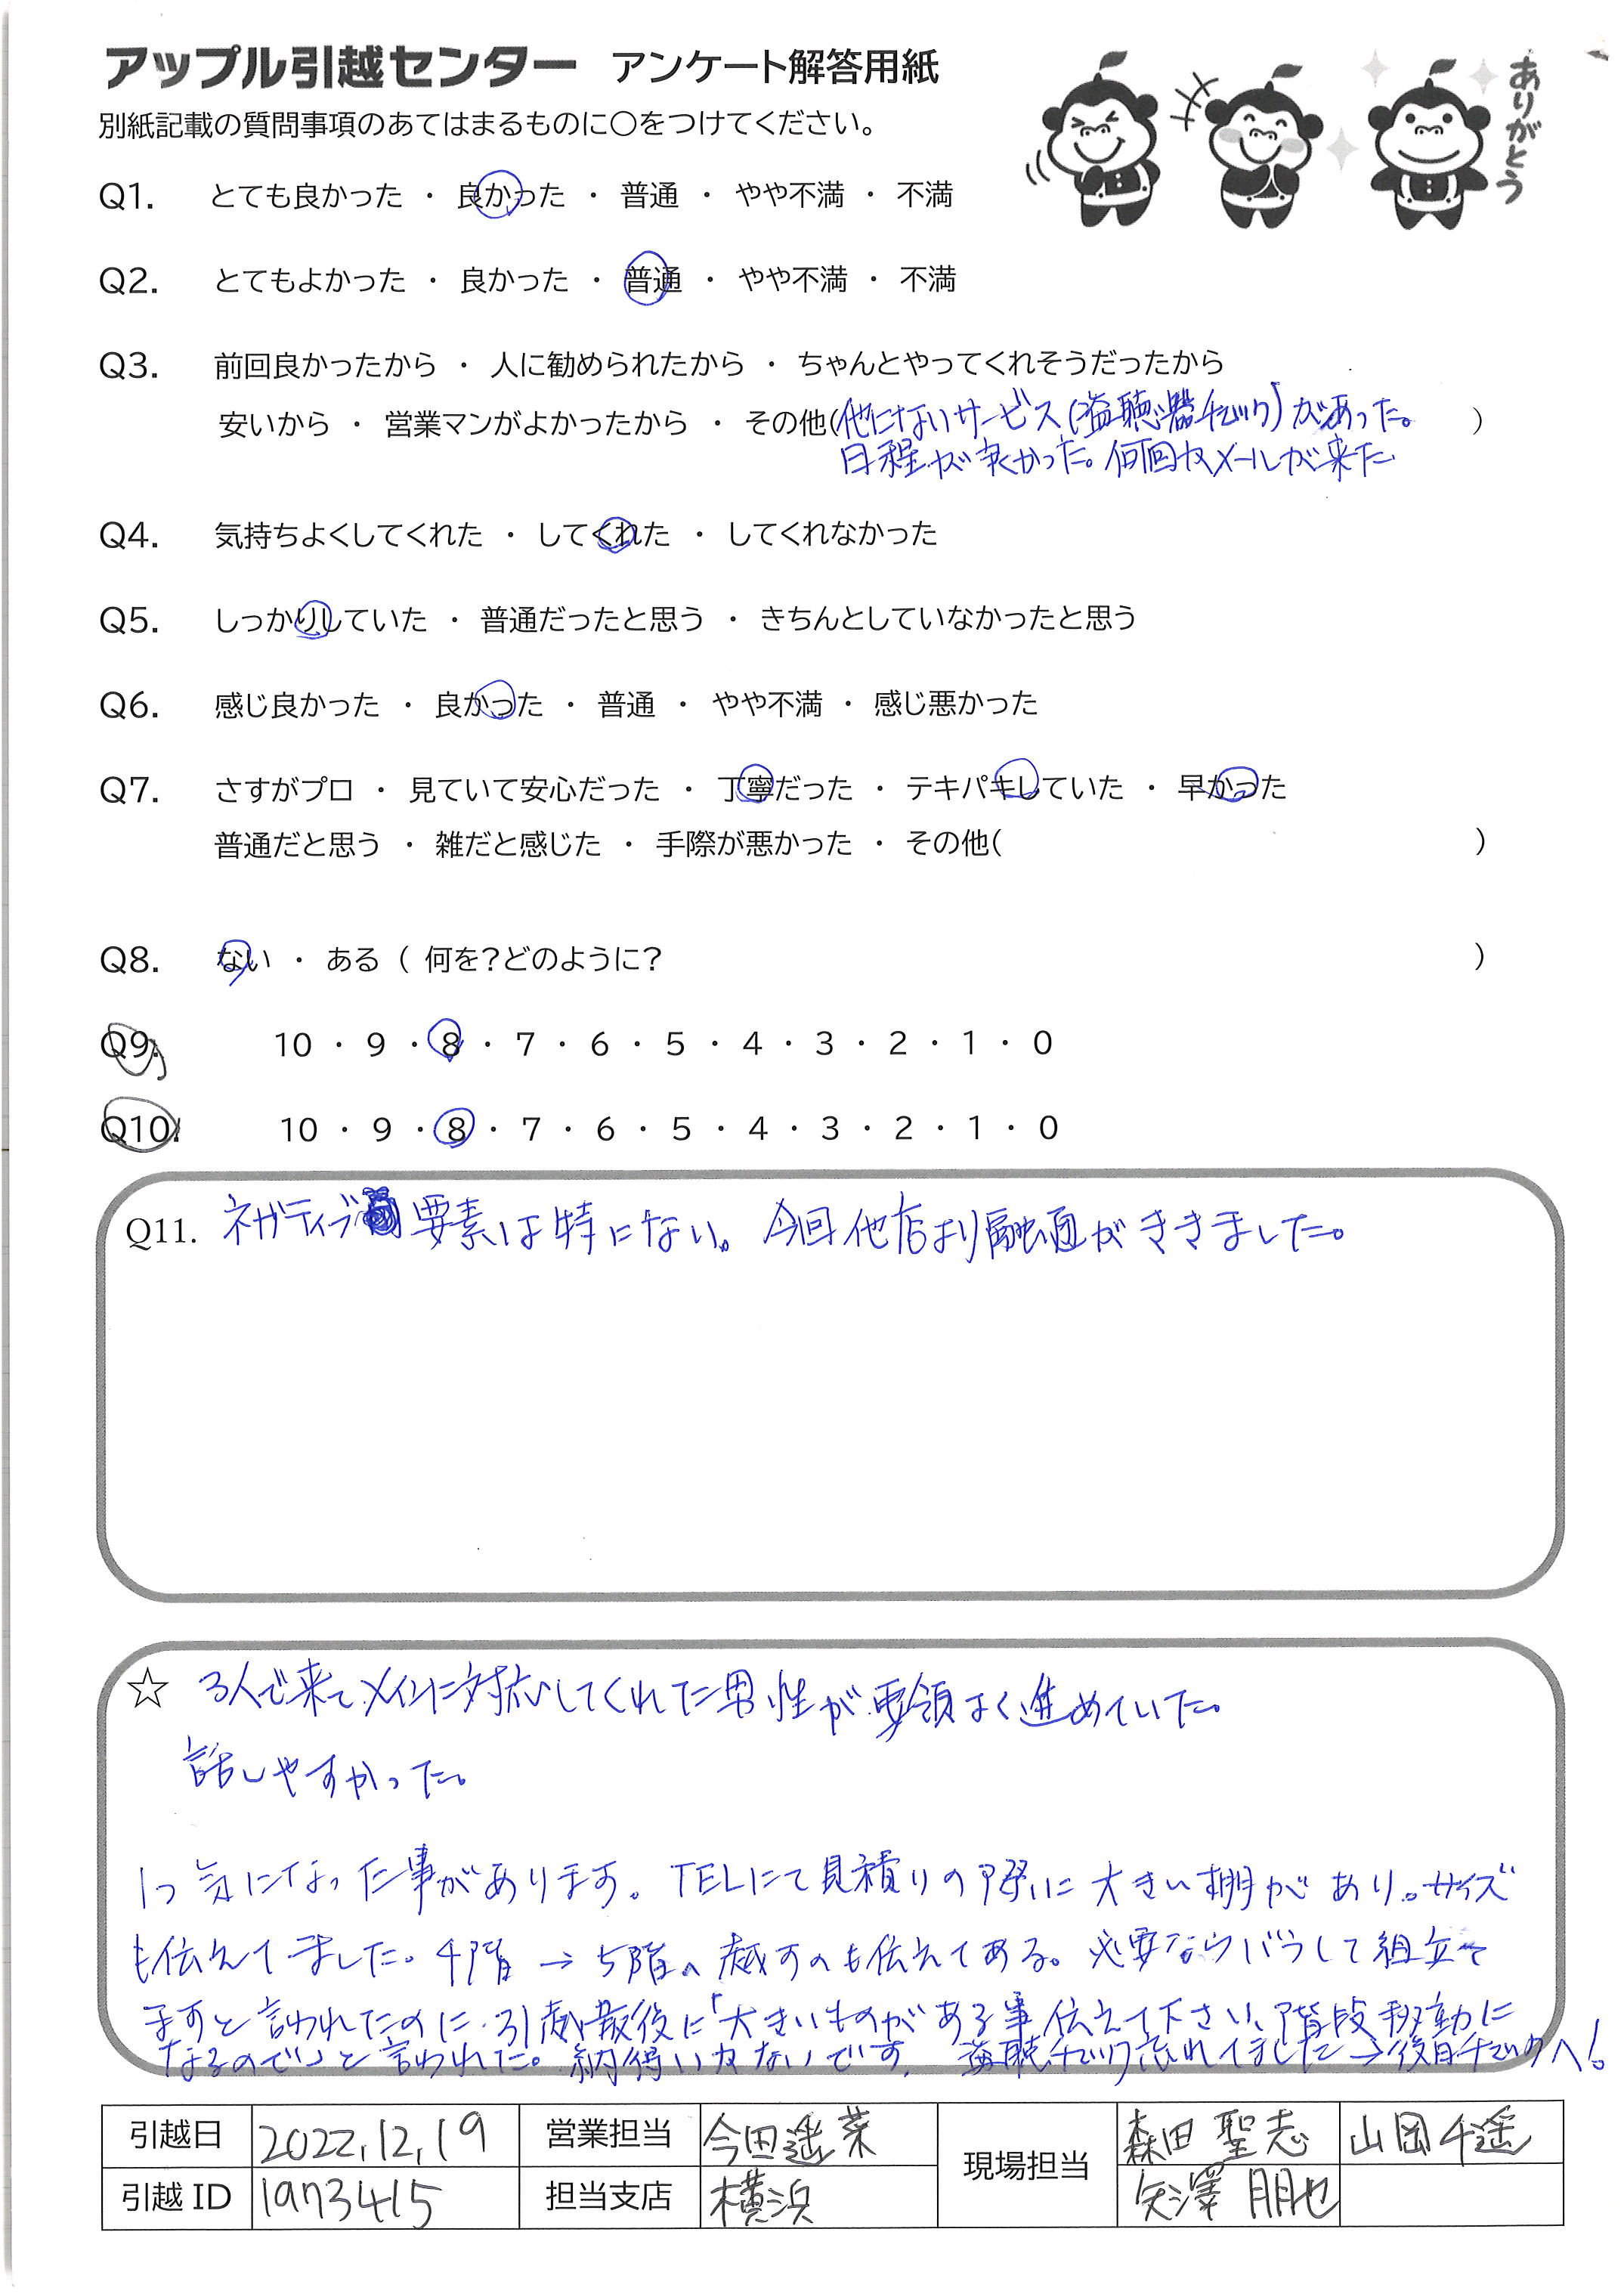 アップル引越センター アンケート解答用紙
ありがとう
別紙記載の質問事項のあてはまるものに〇をつけてください。
Q1. とても良かった ・ 良かった ・ 普通 ・ やや不満 ・ 不満
Q2. とてもよかった ・ 良かった ・ 普通 ・ やや不満 ・ 不満
Q3. 前回良かったから ・ 人に勧められたから ・ ちゃんとやってくれそうだったから
安いから ・ 営業マンがよかったから ・ その他(他にないサービス(盗聴器チェック)があった。 )
日程が良かった。何回かメールが来た
Q4. 気持ちよくしてくれた ・ してくれた ・ してくれなかった
Q5. しっかりしていた ・ 普通だったと思う ・ きちんとしていなかったと思う
Q6. 感じ良かった ・ 良かった ・ 普通 ・ やや不満 ・ 感じ悪かった
Q7. さすがプロ ・ 見ていて安心だった ・ 丁寧だった ・ テキパキしていた ・ 早かった
普通だと思う ・ 雑だと感じた ・ 手際が悪かった ・ その他( )
Q8. ない ・ ある ( 何を?どのように? )
Q9. 10 ・ 9 ・ 8 ・ 7 ・ 6 ・ 5 ・ 4 ・ 3 ・ 2 ・ 1 ・ 0
Q10. 10 ・ 9 ・ 8 ・ 7 ・ 6 ・ 5 ・ 4 ・ 3 ・ 2 ・ 1 ・ 0
Q11. ネガティブ要素は特にない。今回他店より融通がききました。
☆ 3人で来てメインに対応してくれた男性が要領よく進めていた。
話しやすかった。
1つ気になった事があります。TELにて見積りの際に大きい棚があり。サイズ
も伝えてました。4階→5階へ越すのも伝えてある。必要ならバラして組立て
ますと言われたのに、引越 後に「大きいものがある事伝えて下さい、階段移動に
なるので」と言われた。納得いかないです。 盗聴チェック忘れてました→後日チェックへ!
引越日 2022.12.19 営業担当 今田遥菜 現場担当 森田 聖志 山岡千遥
引越ID 1973415 担当支店 横浜 矢澤 朋也